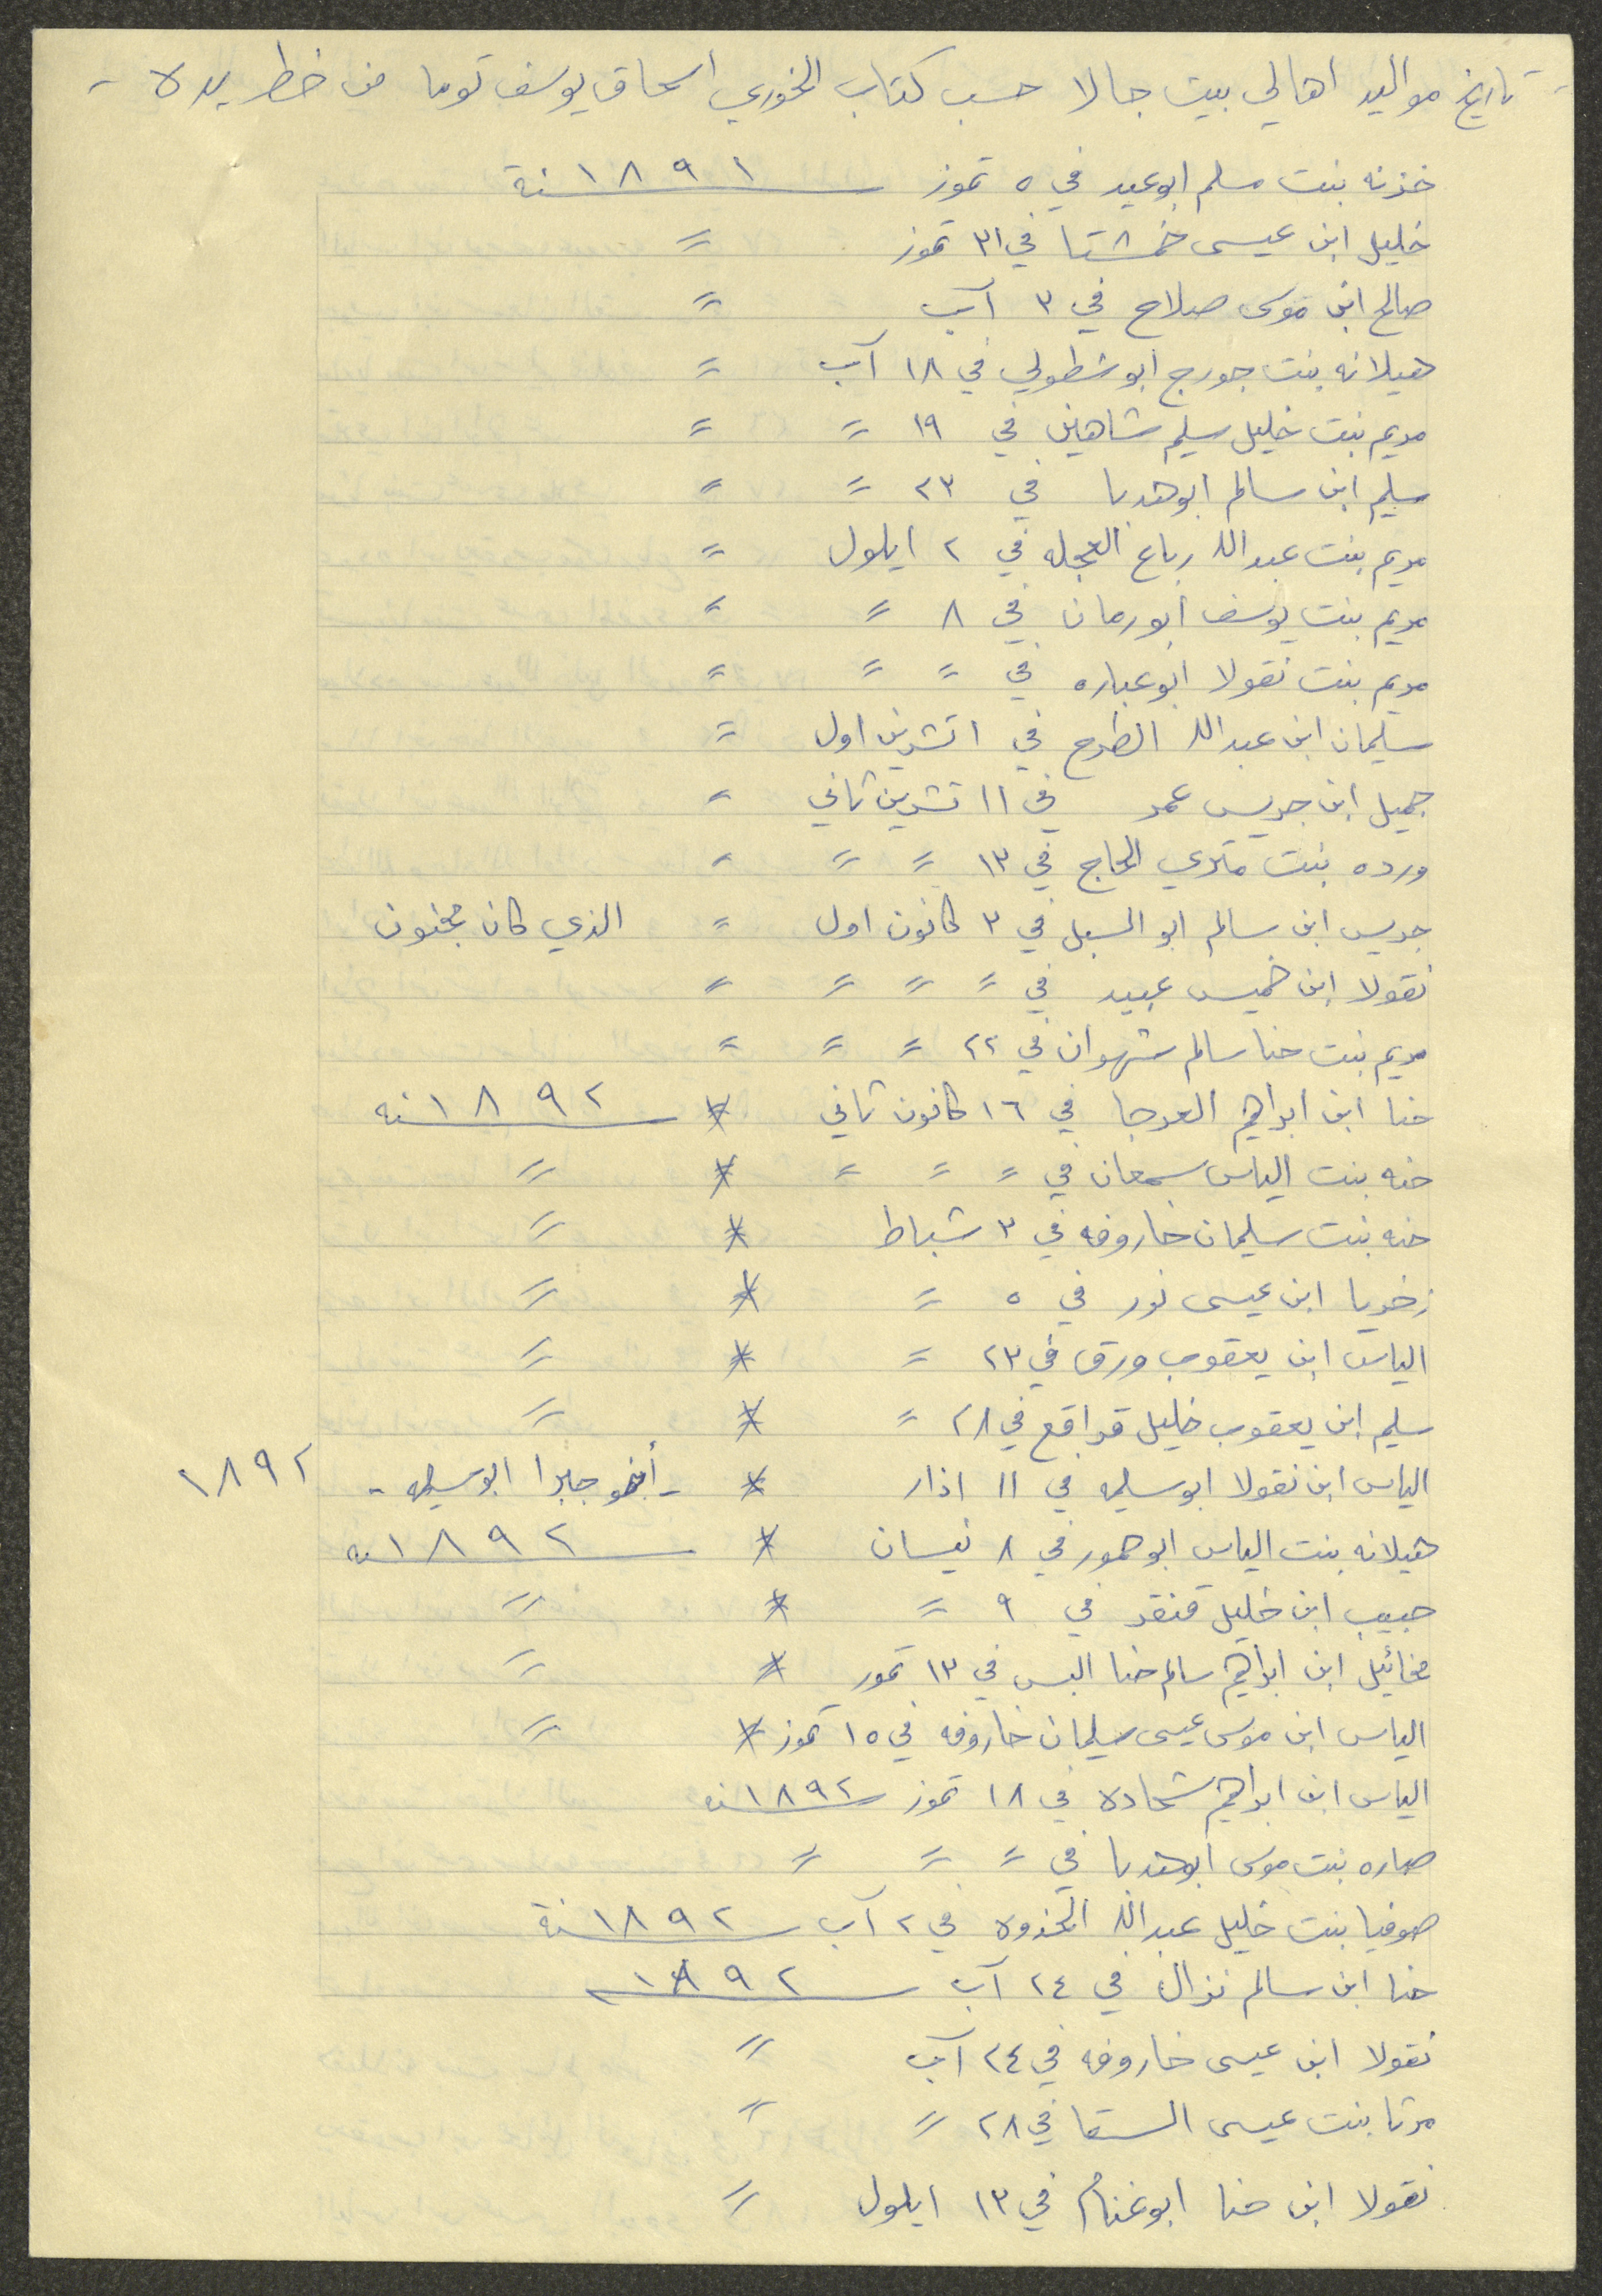 - تاريخ مواليد اهالي بيت جالا حسب كتاب الخوري اسحاق يوسف توما من خط يده -
خزنه بنت مسلم ابوعيد في ٥ تموز سنة ١٨٩١
خليل ابن عيسى خمشتا في ٣١ تموز =
صالح ابن موسى صلاح في ٣ آب =
هيلانه بنت جورج ابو شطولي في ١٨ آب =
مريم بنت خليل سليم شاهين في ١٩ = =
سليم ابن سالم ابوهدبا في ٢٣ = =
مريم بنت عبدالله رباع العجله في ٢ ايلول =
مريم بنت يوسف ابورمان في ٨ = =
مريم بنت نقولا ابوعباره في = = =
سليمان ابن عبدالله الطرح في ١ تشرين اول =
جميل ابن جريس عمر في ١١ تشرين ثاني =
ورده بنت متري الحاج في ١٣ = = =
جريس ابن سالم ابو السبل في ٣ كانون اول = الذي كان مجنون
نقولا ابن خميس عبيد في = = = =
مريم بنت حنا سالم شهوان في ٢٢ = = =
حنا ابن ابراهيم العرجا في ١٦ كانون ثاني * سنه ١٨٩٢
حنه بنت الياس سمعان في = = = * =
حنه بنت سليمان خاروفه في ٣ شباط * =
زخريا ابن عيسى نور في ٥ = * =
الياس ابن يعقوب ورق في ٢٣ = * =
سليم ابن يعقوب خليل قراقع في ٢٨ = * =
الياس ابن نقولا ابوسليمه في ١١ اذار * - أخو جابرا ابوسليمه - ١٨٩٢
هيلانه بنت الياس ابوحمور في ٨ نيسان * سنه ١٨٩٢
حبيب ابن خليل قنقر في ٩ = * =
مخائيل ابن ابراهيم سالم حنا البس في ١٣ تموز * =
الياس ابن موسى عيسى سليمان خاروفه في ١٥ تموز * =
الياس ابن ابراهيم شحاده في ١٨ تموز سنه ١٨٩٢
صاره بنت موسى ابوهدبا في = = =
صوفيا بنت خليل عبدالله في ٢ آب سنة ١٨٩٢
حنا ابن سالم نزال في ٢٤ آب سنه ١٨٩٢
نقولا ابن عيسى خاروفه في ٢٤ آب =
مرتا بنت عيسى السقا في ٢٨ = =
نقولا ابن حنا ابوغنام في ١٣ ايلول =